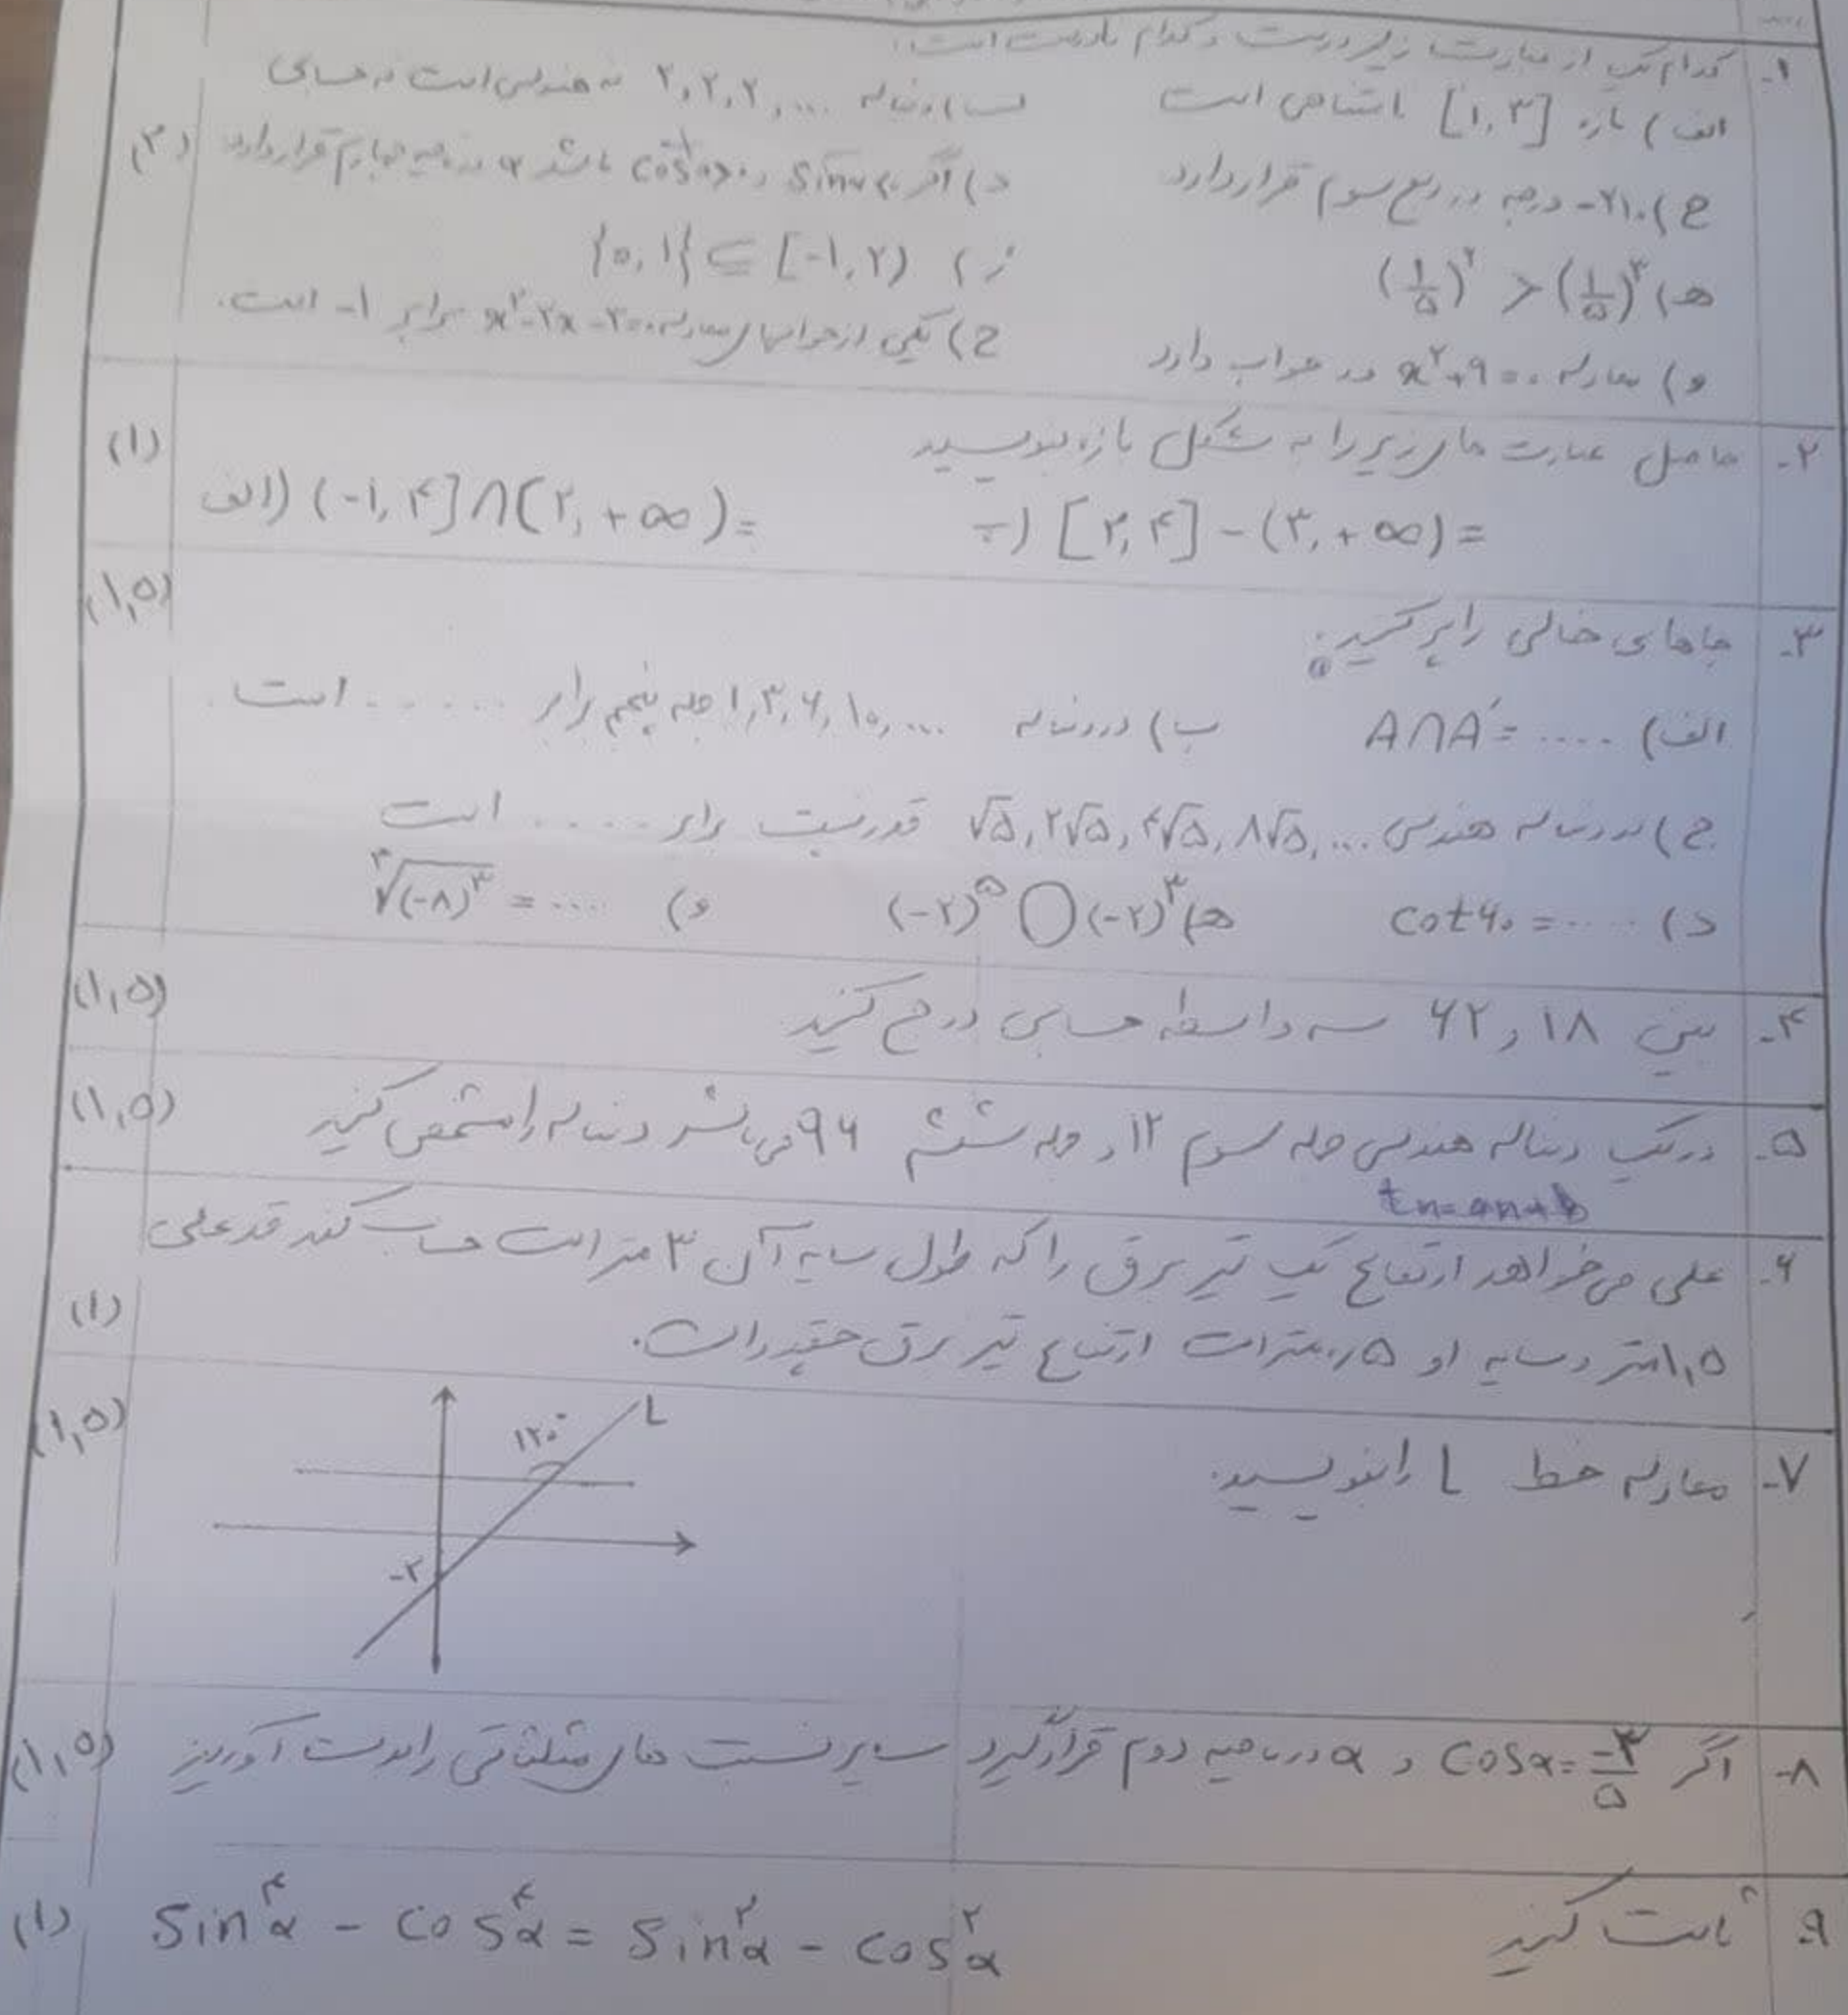 ۱- کدام یک از عبارت زیر درست و کدام نادرست است:
الف) بازه [۱,۳] متناهی است ب) دنباله ...,۲,۲,۲ نه هندسی است نه حسابی
ج) ۲۱۰- درجه در ربع سوم قرار دارد د) اگر sinα<۰ و cosα>۰ باشد α در ناحیه چهارم قرار دارد (۲)
ه) (۱/۵)^۲ > (۱/۵)^۳ ز) {۰,۱} ⊆ [-۱,۲)
و) معادله x^۲+۹=۰ دو جواب دارد ح) یکی از جوابهای معادله x^۲-۲x-۳=۰ برابر ۱- است.
۲- حاصل عبارت های زیر را به شکل بازه بنویسید (۱)
الف) (-۱,۴]∩(۲,+∞)= ب) [۲,۴]-(۳,+∞)=
۳- جاهای خالی را پر کنید: (۱,۵)
الف) A∩A′=.... ب) در دنباله ...,۱,۳,۶,۱۰ جمله پنجم برابر ...... است.
ج) در دنباله هندسی ...,√۵,۲√۵,۴√۵,۸√۵ قدرنسبت برابر ..... است
د) cot۶۰=..... ه) (-۲)^۵ ◯ (-۲)^۳ و) ∛(-۸)^۳ = ....
۴- بین ۱۸ و ۶۲ سه واسطه حسابی درج کنید (۱,۵)
۵- در یک دنباله هندسی جمله سوم ۱۲ و جمله ششم ۹۶ می باشد دنباله را مشخص کنید (۱,۵)
tn=an+b
۶- علی می خواهد ارتفاع یک تیر برق را که طول سایه آن ۳ متر است حساب کند قد علی
۱,۵ متر و سایه او ۰,۵ متر است ارتفاع تیر برق چقدر است. (۱)
۷- معادله خط L را بنویسید. (۱,۵)
L
۱۲۰°
-۲
۸- اگر cosα=-۳/۵ و α در ناحیه دوم قرار گیرد سایر نسبت های مثلثاتی را بدست آورید (۱,۵)
۹- ثابت کنید sin^۴α - cos^۴α = sin^۲α - cos^۲α (۱)